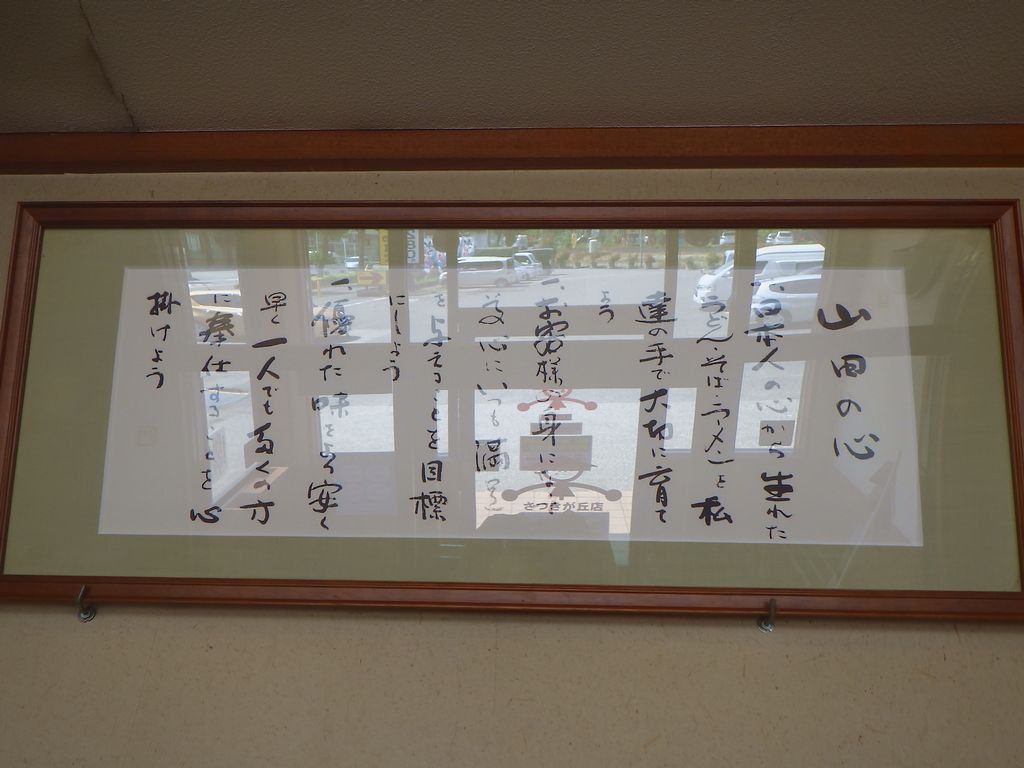 山田の心
一、日本人の心から生れた
うどん、そば、ラーメンを私
達の手で大切に育て
よう
一、お客様の身になって
心にいつも満足
を与えることを目標
にしよう
一、優れた味をより安く
早く一人でも多くの方
に奉仕することを心
掛けよう
さつきが丘店